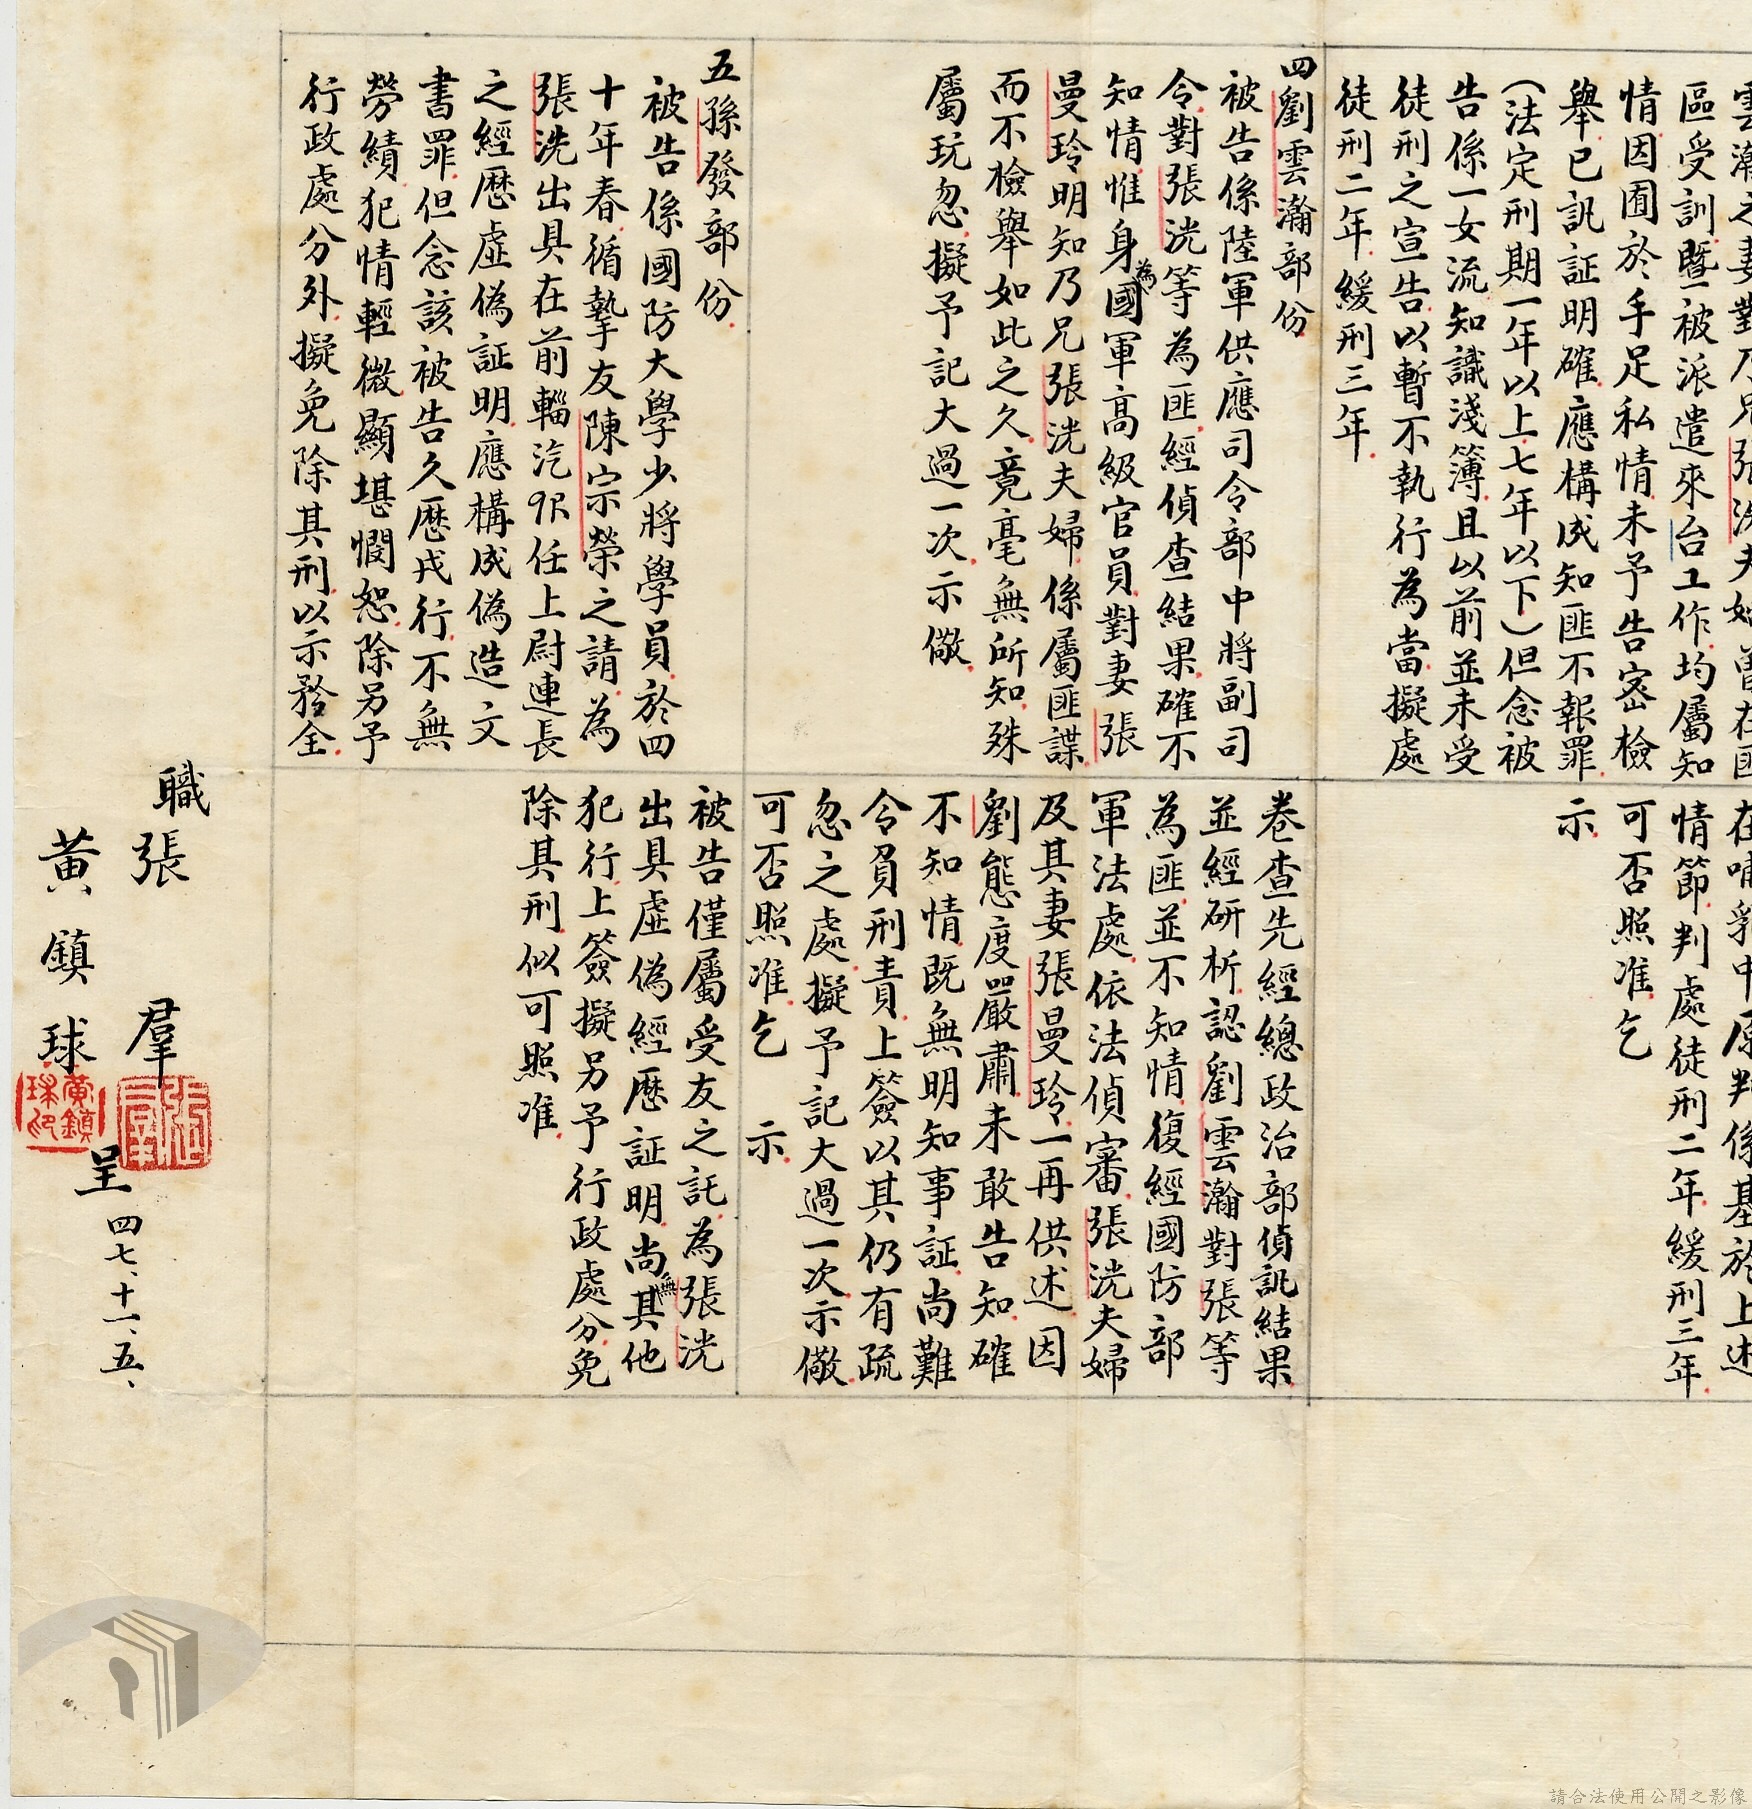 雲瀚之妻對乃兄張洸夫婦曾在匪
區受訓暨被派遣來台工作均屬知
情因囿於手足私情未予告密檢
舉已訊証明確應構成知匪不報罪
(法定刑期一年以上七年以下)但念被
告係一女流知識淺簿且以前並未受
徒刑之宣告以暫不執行為當擬處
徒刑二年緩刑三年
在哺乳中原判係基於上述
情節判處徒刑二年緩刑三年
可否照准乞
示
四劉雲瀚部份
被告係陸軍供應司令部中將副司
令對張洸等為匪經偵查結果確不
知情惟身為國軍高級官員對妻張
曼玲明知乃兄張洸夫婦係屬匪諜
而不檢舉如此之久竟毫無所知殊
屬玩忽擬予記大過一次示儆
卷查先經總政治部偵訊結果
並經研析認劉雲瀚對張等
為匪並不知情復經國防部
軍法處依法偵審張洸夫婦
及其妻張曼玲一再供述因
劉態度嚴肅未敢告知確
不知情既無明知事証尚難
令負刑責上簽以其仍有疏
忽之處擬予記大過一次示儆
可否照准乞 示
五孫發部份
被告係國防大學少將學員於四
十年春循摯友陳宗榮之請為
張洸出具在前輜汽卅任上尉連長
之經歷虛偽証明應構成偽造文
書罪但念該被告久歷戎行不無
勞績犯情輕微顯堪憫恕除另予
行政處分外擬免除其刑以示矜全
被告僅屬受友之託為張洸
出具虛偽經歷証明尚無其他
犯行上簽擬另予行政處分免
除其刑似可照准
職張羣
黃鎮球
呈 四七、十一、五、
黃鎮球印
張羣
請合法使用公開之影像